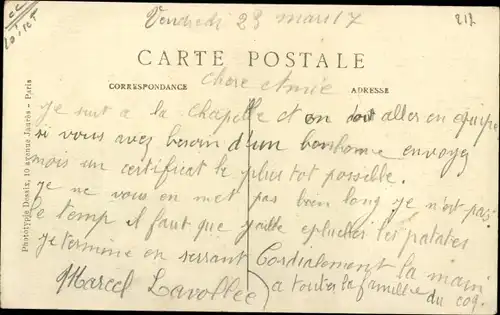 Vendredi 23 mars 17
212
Loiret
CARTE POSTALE
CORRESPONDANCE
ADRESSE
Chere Amie
je suit a la chapelle et on doit aller en equipe
si vous avez besoin d'un bonhome envoyez
mois un certificat le plus tot possible.
je ne vous en met pas bien long je n'est pas
le temp il faut que jaille eplucher les patates
je termine en serrant Cordialement la main
a toute la famille du coq.
Marcel Lavollée
Phototypie Desaix, 10 avenue Jaurès - Paris